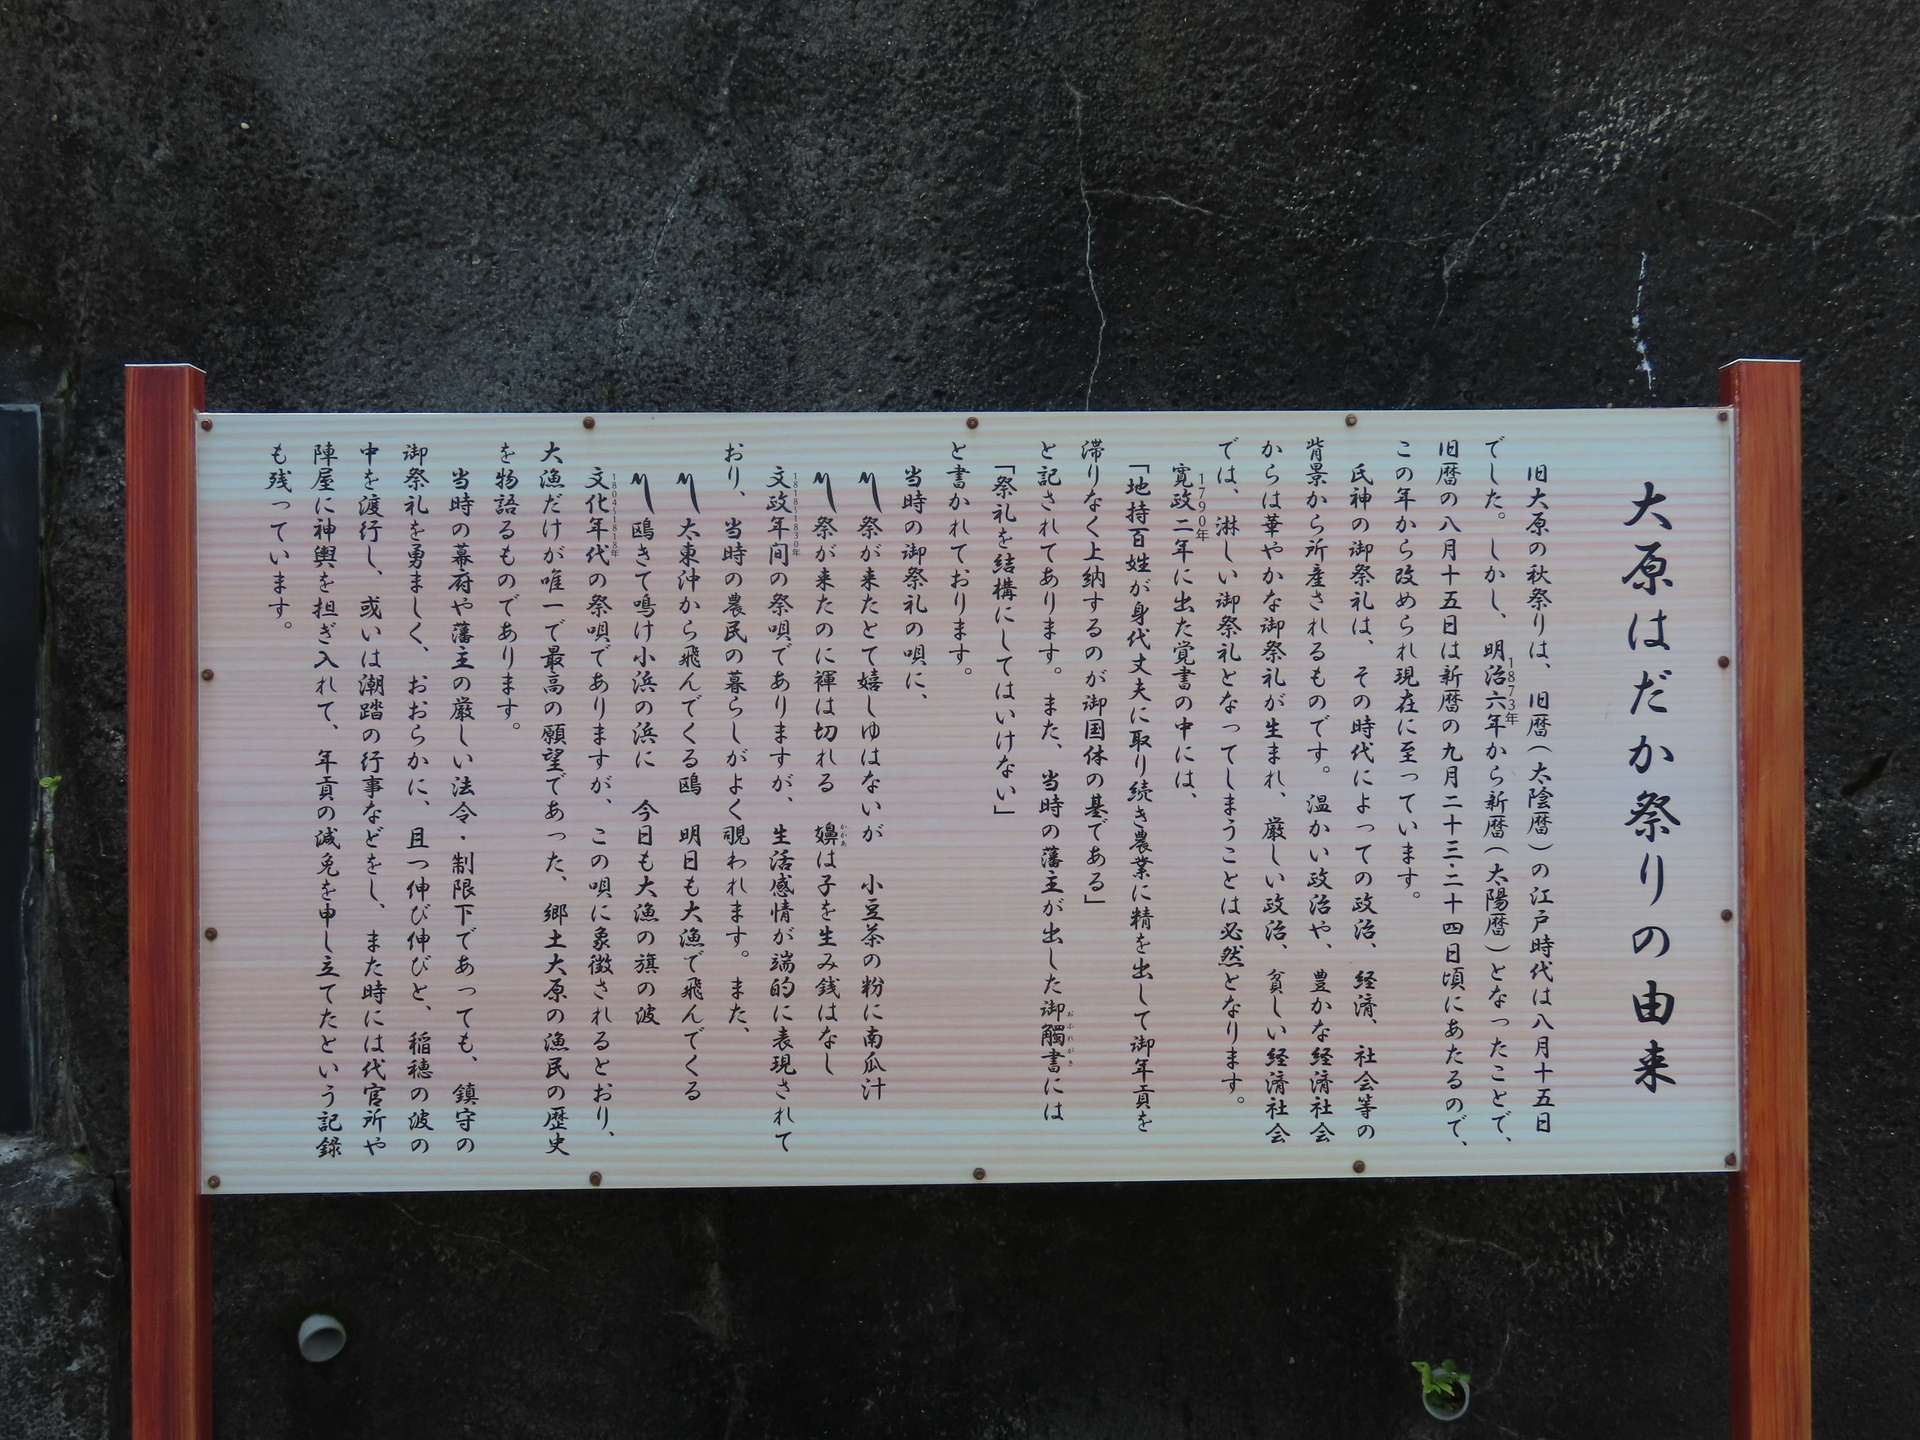 大原はだか祭りの由来
旧大原の秋祭りは、旧暦(太陰暦)の江戸時代は八月十五日
でした。しかし、明治六年から新暦(太陽暦)となったことで、
1873年
旧暦の八月十五日は新暦の九月二十三・二十四日頃にあたるので、
この年から改められ現在に至っています。
氏神の御祭礼は、その時代によっての政治、経済、社会等の
背景から所産されるものです。温かい政治や、豊かな経済社会
からは華やかな御祭礼が生まれ、厳しい政治、貧しい経済社会
では、淋しい御祭礼となってしまうことは必然となります。
寛政二年に出た覚書の中には、
1790年
「地持百姓が身代丈夫に取り続き農業に精を出して御年貢を
滞りなく上納するのが御国体の基である」
と記されてあります。また、当時の藩主が出した御觸書には
おふれがき
「祭礼を結構にしてはいけない」
と書かれております。
当時の御祭礼の唄に、
〽祭が来たとて嬉しゆはないが 小豆茶の粉に南瓜汁
〽祭が来たのに褌は切れる 嬶は子を生み銭はなし
かかあ
文政年间の祭唄でありますが、生活感情が端的に表現されて
1818~1830年
おり、当時の農民の暮らしがよく覗われます。また、
〽太東沖から飛んでくる鴎 明日も大漁で飛んでくる
〽鴎きて鳴け小浜の浜に 今日も大漁の旗の波
文化年代の祭唄でありますが、この唄に象徴されるとおり、
1804~1818年
大漁だけが唯一で最高の願望であった、郷土大原の漁民の歴史
を物語るものであります。
当時の幕府や藩主の厳しい法令・制限下であっても、鎮守の
御祭礼を勇ましく、おおらかに、且つ伸び伸びと、稲穂の波の
中を渡行し、或いは潮踏の行事などをし、また時には代官所や
陣屋に神輿を担ぎ入れて、年貢の減免を申し立てたという記録
も残っています。